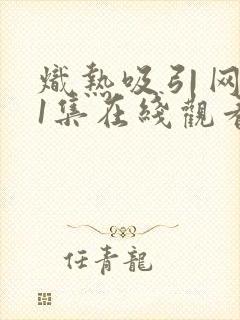 熾熱吸引网
1集在綫觀看
任青龍